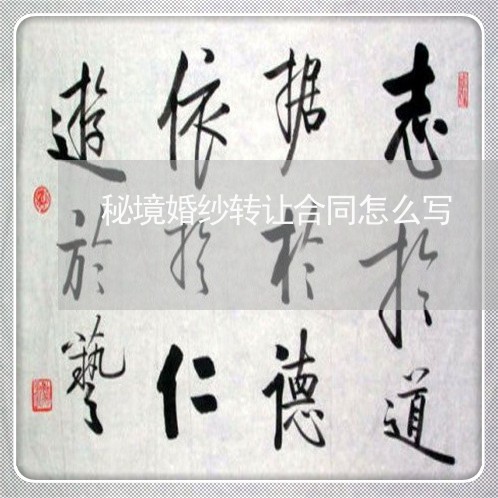 志於道
据於德
依於仁
遊於藝
秘境婚纱转让合同怎么写